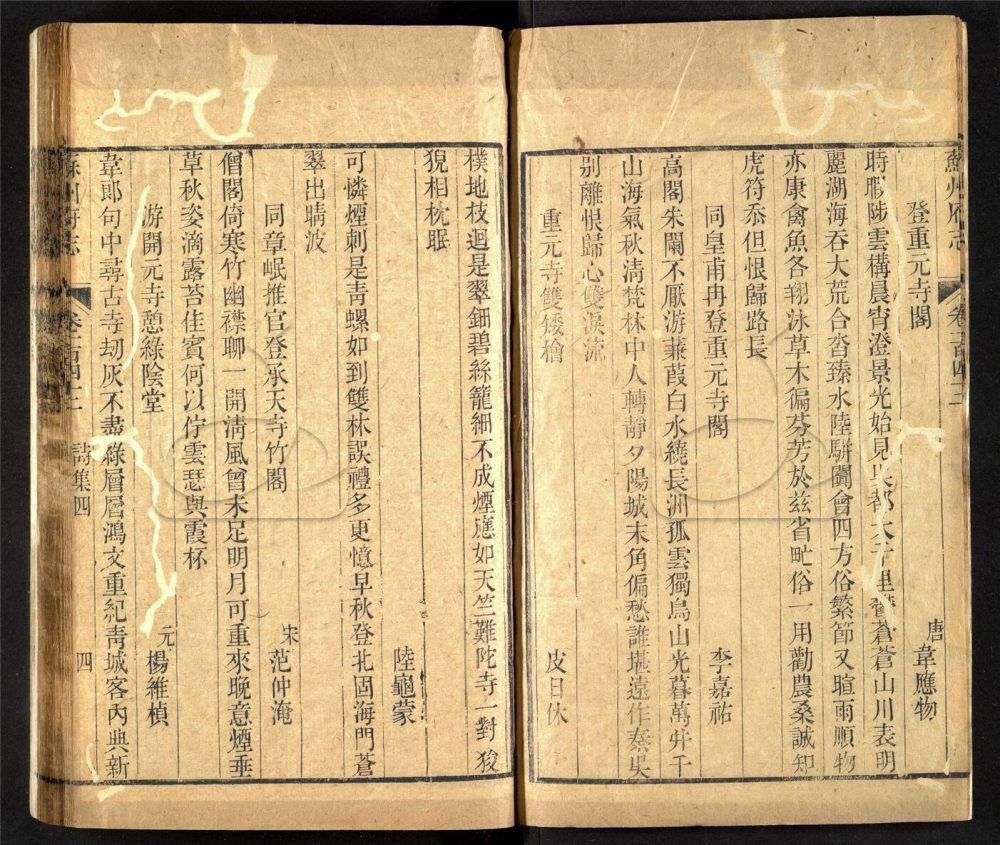 蘇州府志
卷一百四十三
登重元寺閣
唐 韋應物
時暇陟雲構晨宵澄景光始見吳都大十里鬱蒼蒼山川表明
麗湖海吞大荒合沓臻水陸駢闐會四方俗繁節又暄雨順物
亦康禽魚各翔泳草木徧芬芳於茲省甿俗一用勸農桑誠知
虎符忝但恨歸路長
同皇甫冉登重元寺閣
李嘉祐
高閣朱闌不厭游蒹葭白水繞長洲孤雲獨鳥山光暮萬井千
山海氣秋清梵林中人轉靜夕陽城末角偏愁誰堪遠作秦吳
别離恨歸心雙淚流
重元寺雙矮檜
皮日休
樸地枝迴是翠鈿碧絲籠細不成煙應如天竺難陀寺一對狻
猊相枕眠
陸龜蒙
可憐煙刺是青螺如到雙林誤禮多更憶早秋登北固海門蒼
翠出晴波
同章岷推官登承天寺竹閣
宋 范仲淹
僧閣倚寒竹幽襟聊一開清風曾未足明月可重來晚意煙垂
草秋姿滴露苔佳賓何以佇雲瑟與霞杯
游開元寺憩綠陰堂
元 楊維楨
韋郎句中尋古寺刼灰不盡綠層層鴻文重紀青城客內典新
蘇州府志
卷一百四十三
詩集四
四